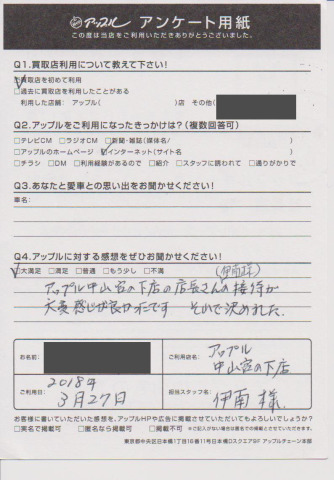 アップル アンケート用紙
この度は当店をご利用いただきありがとうございました。
Q1.買取店利用について教えて下さい!
□買取店を初めて利用
□過去に買取店を利用したことがある
利用した店舗: アップル( )店 その他(
Q2.アップルをご利用になったきっかけは?(複数回答可)
□テレビCM □ラジオCM □新聞・雑誌(媒体名/ )
□アップルのホームページ □インターネット(サイト名 )
□チラシ □DM □利用経験があるので □紹介 □スタッフに誘われて □通りがかりで
Q3.あなたと愛車との思い出をお聞かせください!
車名:
Q4.アップルに対する感想をぜひお聞かせください!
□大満足 □満足 □普通 □もう少し □不満
(伊南様)
アップル中山宮の下店の店長さんの接待が
大変感じが良かったです それで決めました。
お名前:
ご利用店名: アップル
中山宮の下店
ご利用日: 2018年
3月27日
担当スタッフ名: 伊南 様
お客様に書いていただいた感想を、アップルHPや広告に掲載させていただいてもよろしいでしょうか?
□実名で掲載可 □匿名なら掲載可 □掲載不可 ※ご記入がない場合は匿名での掲載とさせていただきます。
東京都中央区日本橋1丁目16番11号日本橋Dスクエア9F アップルチェーン本部